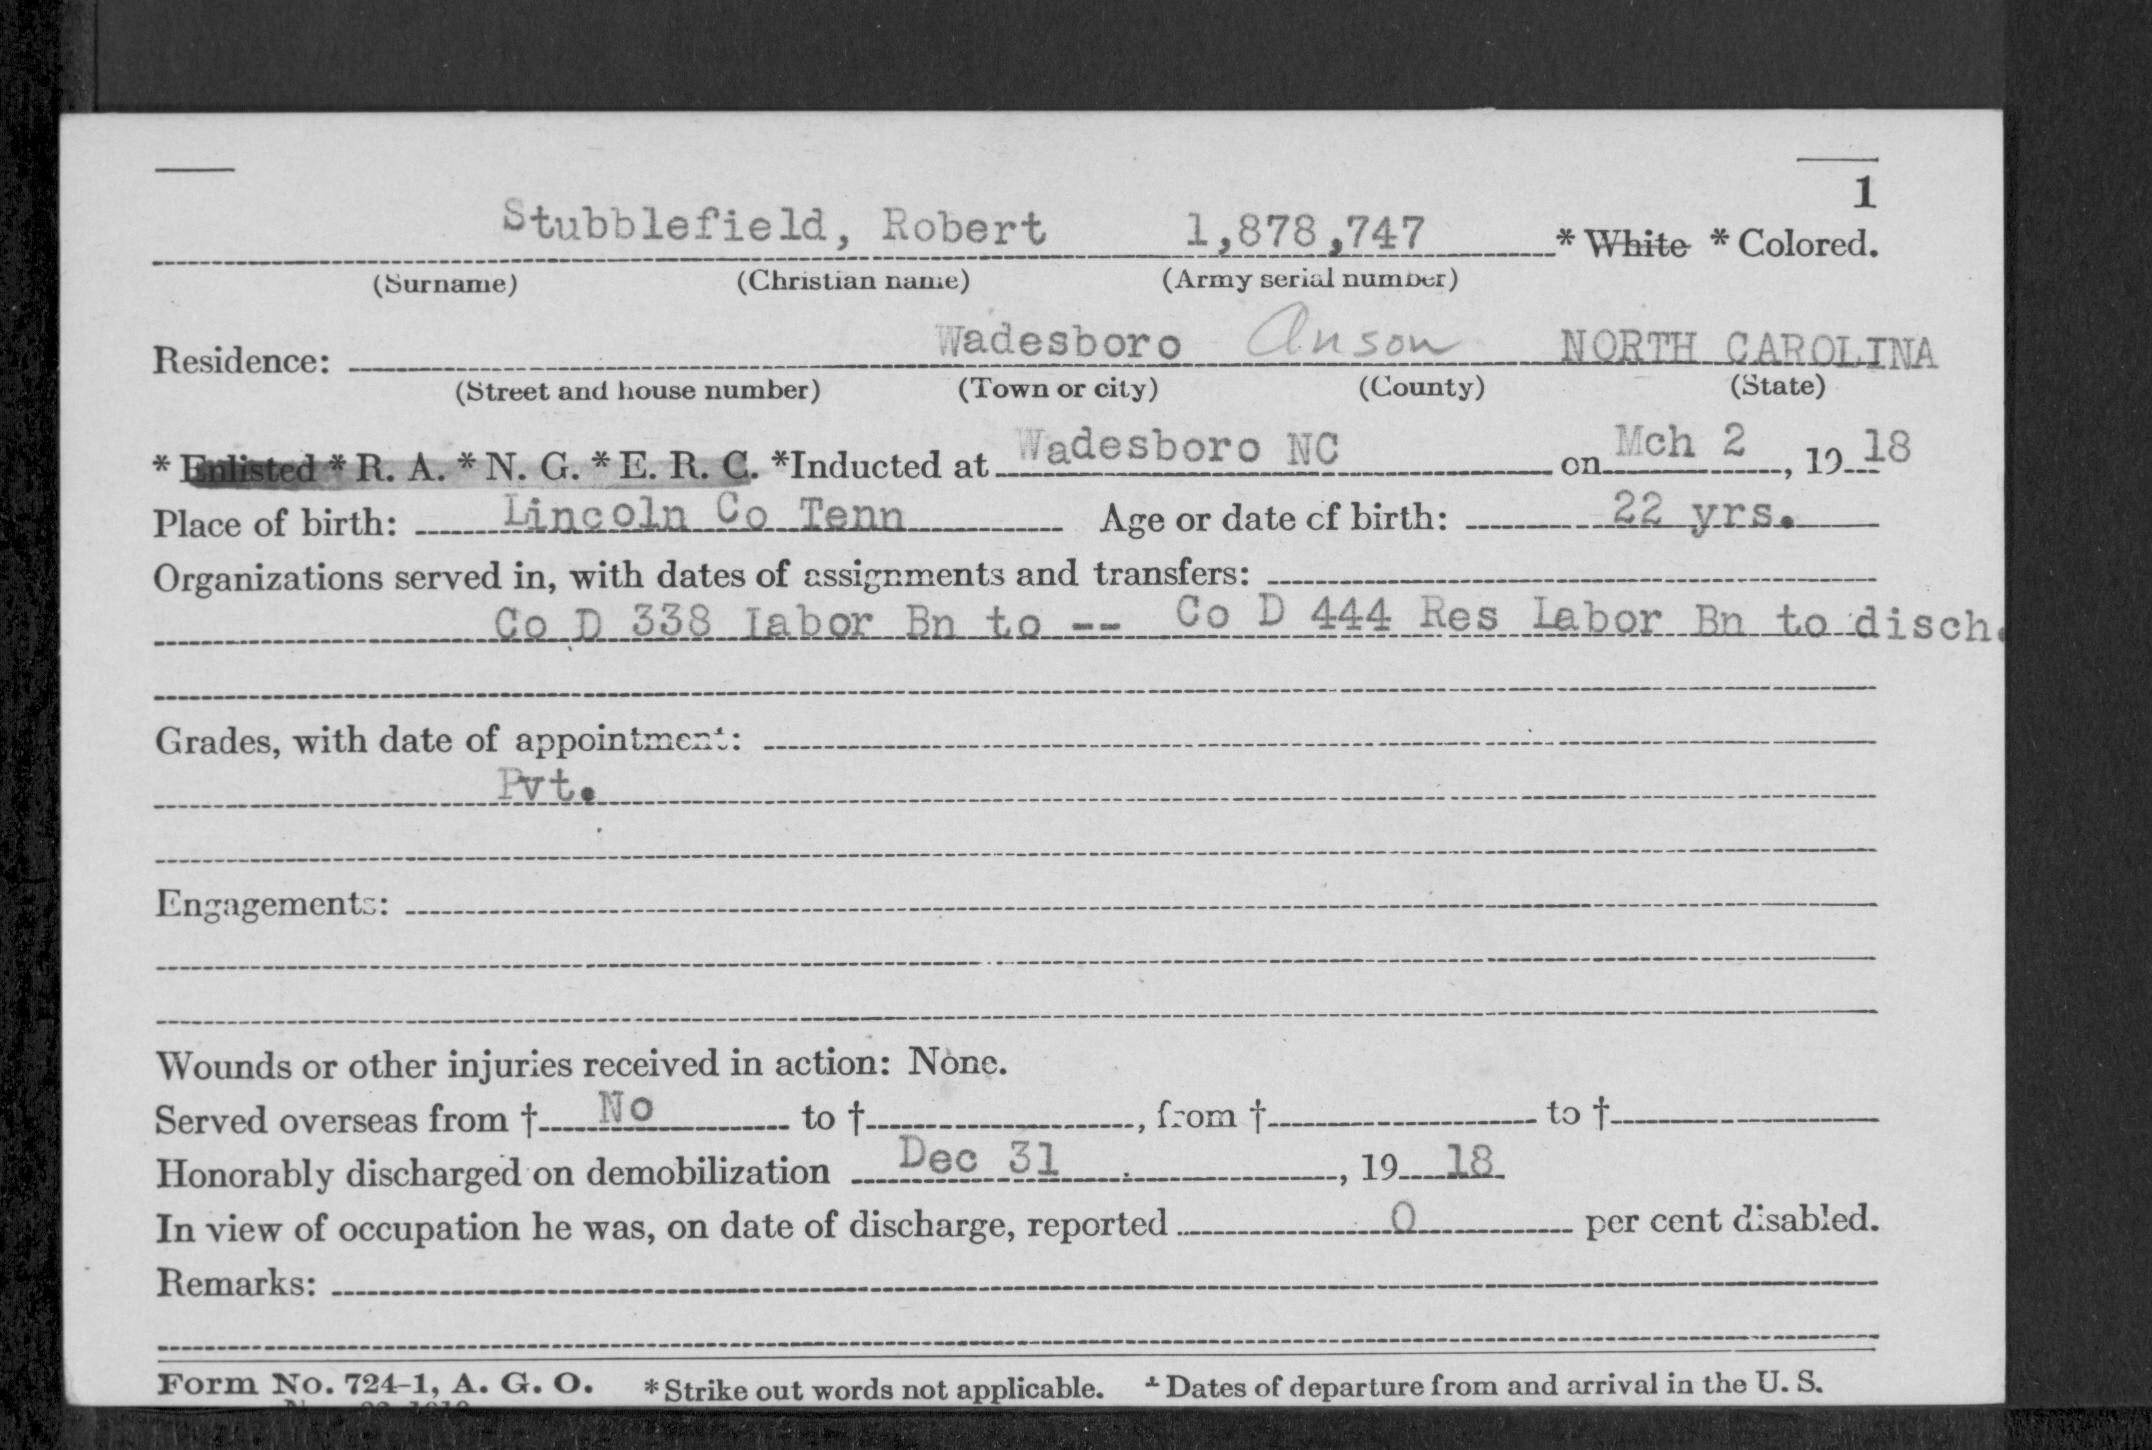 1
Stubblefield, Robert 1,878,747 * White * Colored.
(Surname) (Christian name) (Army serial number)
Residence: Wadesboro Anson NORTH CAROLINA
(Street and house number) (Town or city) (County) (State)
* Enlisted * R. A. * N. G. * E. R. C. *Inducted at Wadesboro NC on Mch 2, 1918
Place of birth: Lincoln Co Tenn Age or date of birth: 22 yrs.
Organizations served in, with dates of assignments and transfers:
Co D 338 Labor Bn to -- Co D 444 Res Labor Bn to disch.
Grades, with date of appointment:
Pvt.
Engagements:
Wounds or other injuries received in action: None.
Served overseas from † No to †, from † to †
Honorably discharged on demobilization Dec 31, 1918
In view of occupation he was, on date of discharge, reported 0 per cent disabled.
Remarks:
Form No. 724-1, A. G. O. *Strike out words not applicable. † Dates of departure from and arrival in the U. S.